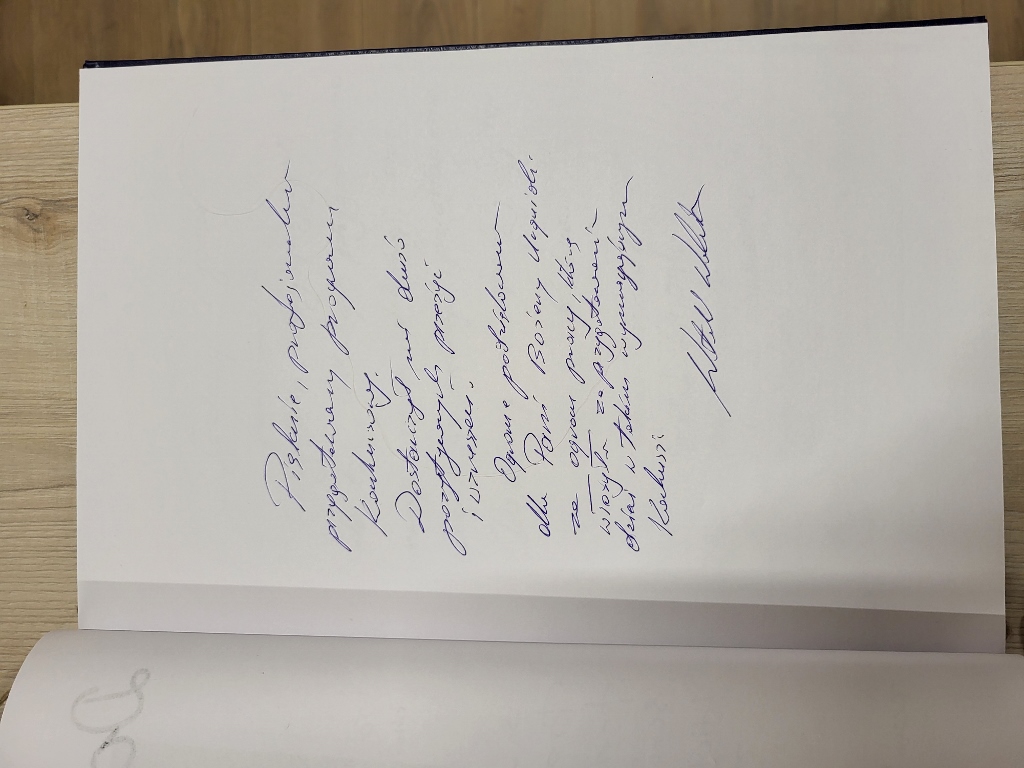 Pięknie, profesjonalnie
przygotowany program
konkursowy.
Dostarczył mi dużo
pozytywnych emocji
i wrażeń.
Ogromne podziękowania
dla Pani Bożeny
za ogrom pracy którą
włożyła za przygotowanie
dzieci w takim wymagającym
konkursie